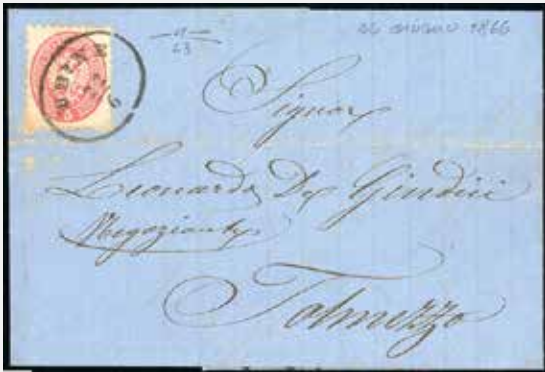 UDINE
22
6
11
63
26 GIUGNO 1866
Signor
Leonardo De Giudici
Negoziante
Tolmezzo